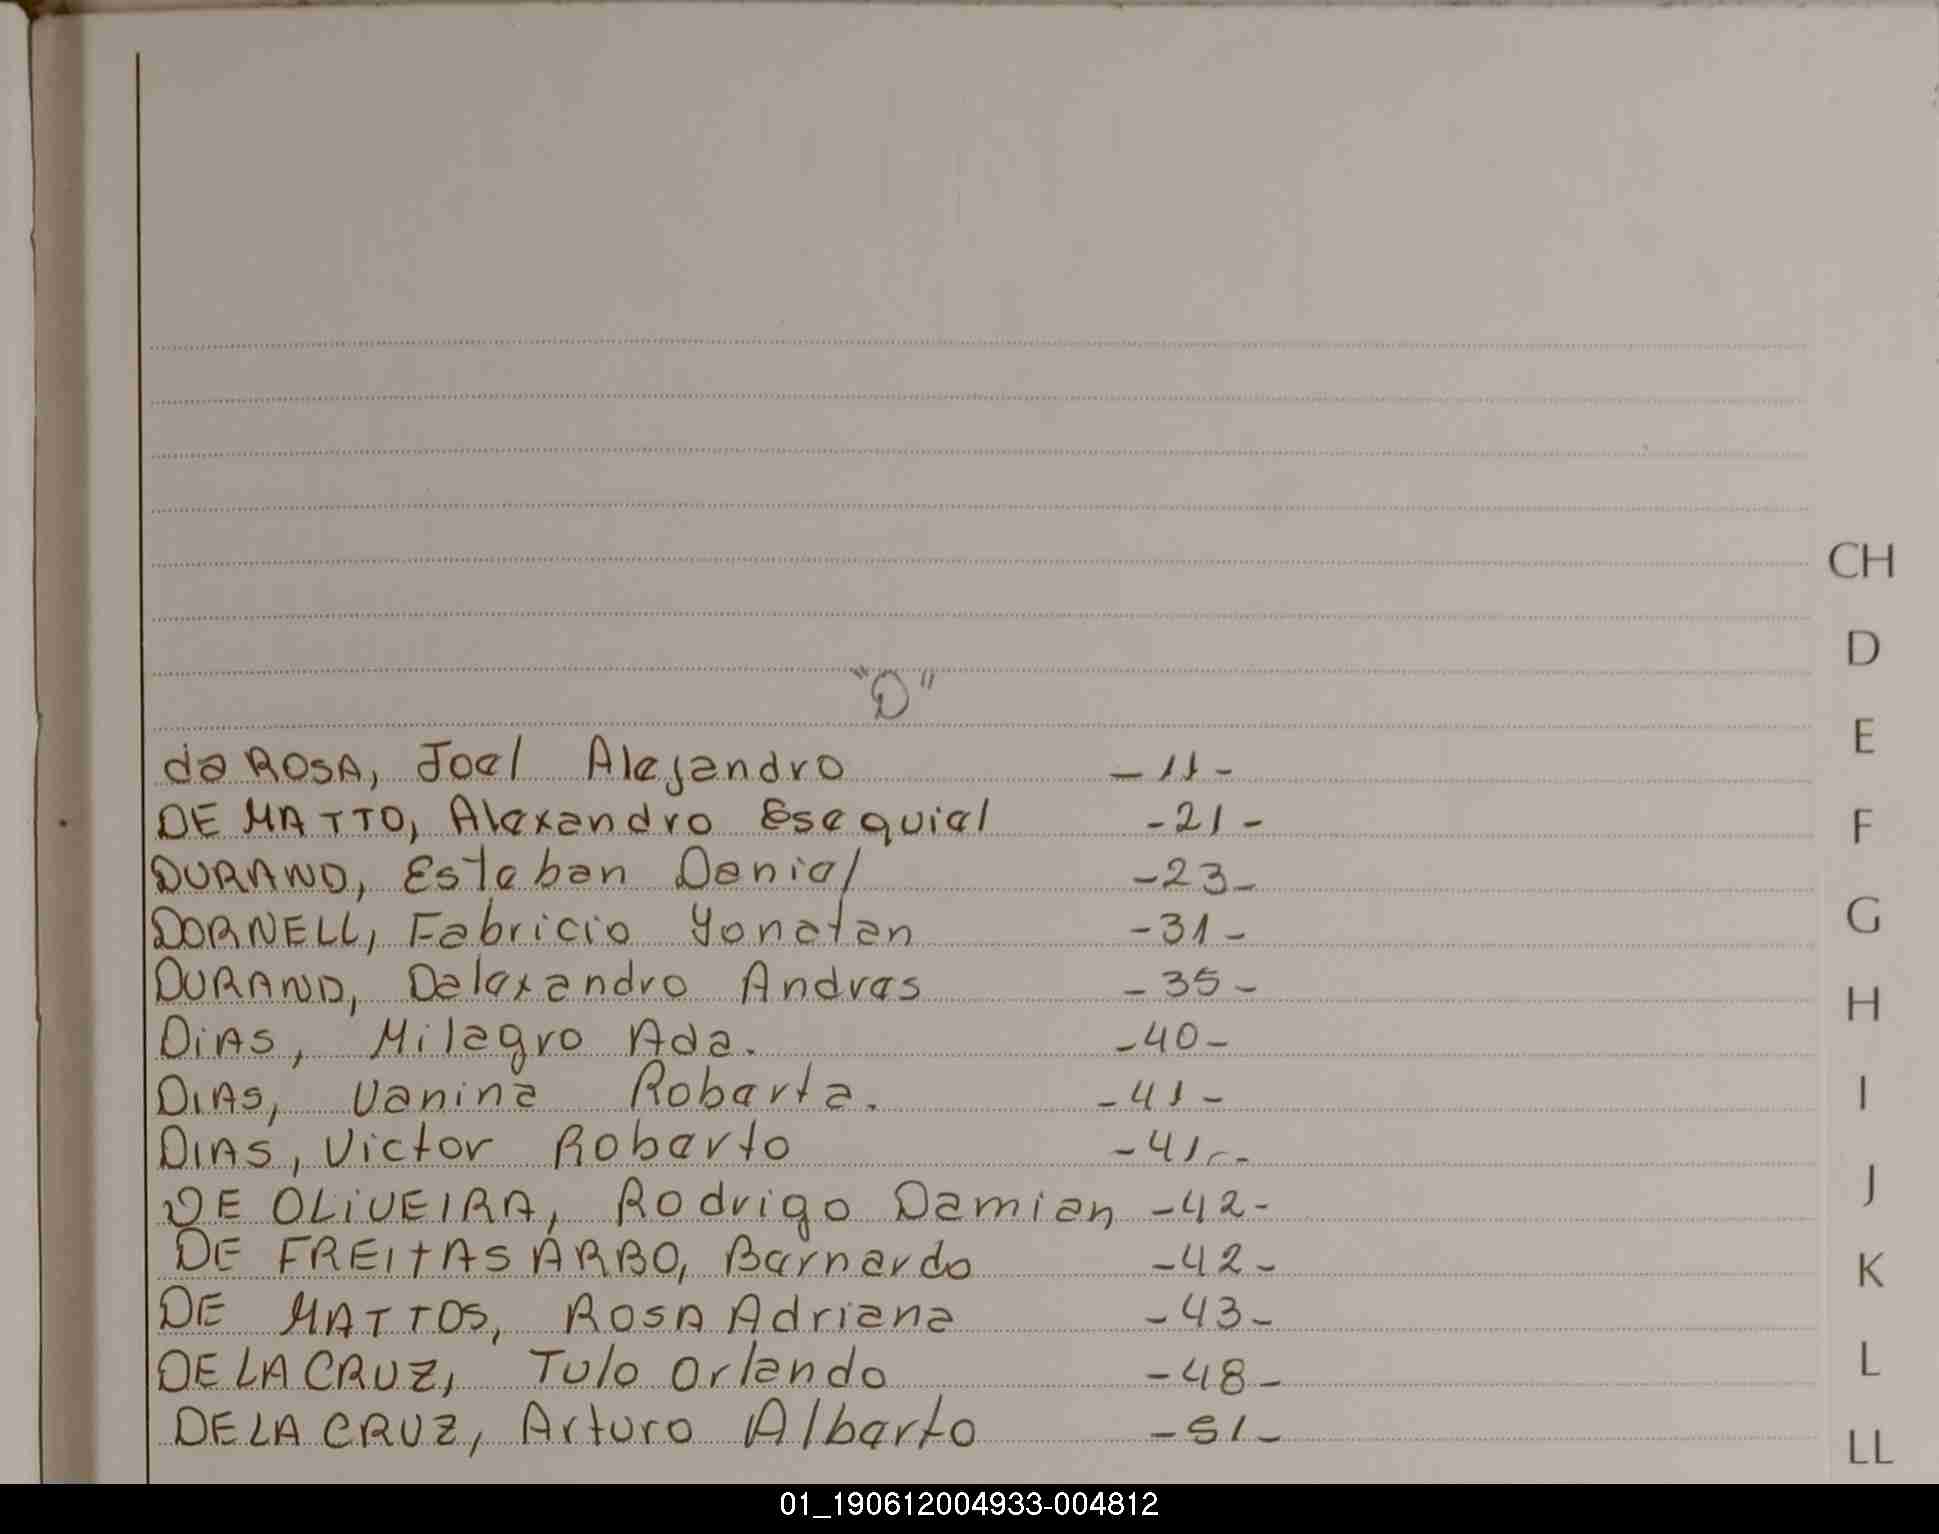 "D"
da ROSA, Joel Alejandro -11-
DE MATTO, Alexandro Esequiel -21-
DURAND, Esteban Daniel -23-
DORNELL, Fabricio Yonatan -31-
DURAND, Dalexandro Andres -35-
DiAS, Milagro Ada. -40-
DIAS, Vanina Roberta. -41-
DIAS, Victor Roberto -41-
DE OLiVEIRA, Rodrigo Damian -42-
DE FREITAS ARBO, Bernardo -42-
DE MATTOS, ROSA Adriana -43-
DE LA CRUZ, Tulo Orlando -48-
DE LA CRUZ, Arturo Alberto -51-
CH
D
E
F
G
H
I
J
K
L
LL
01_190612004933-004812